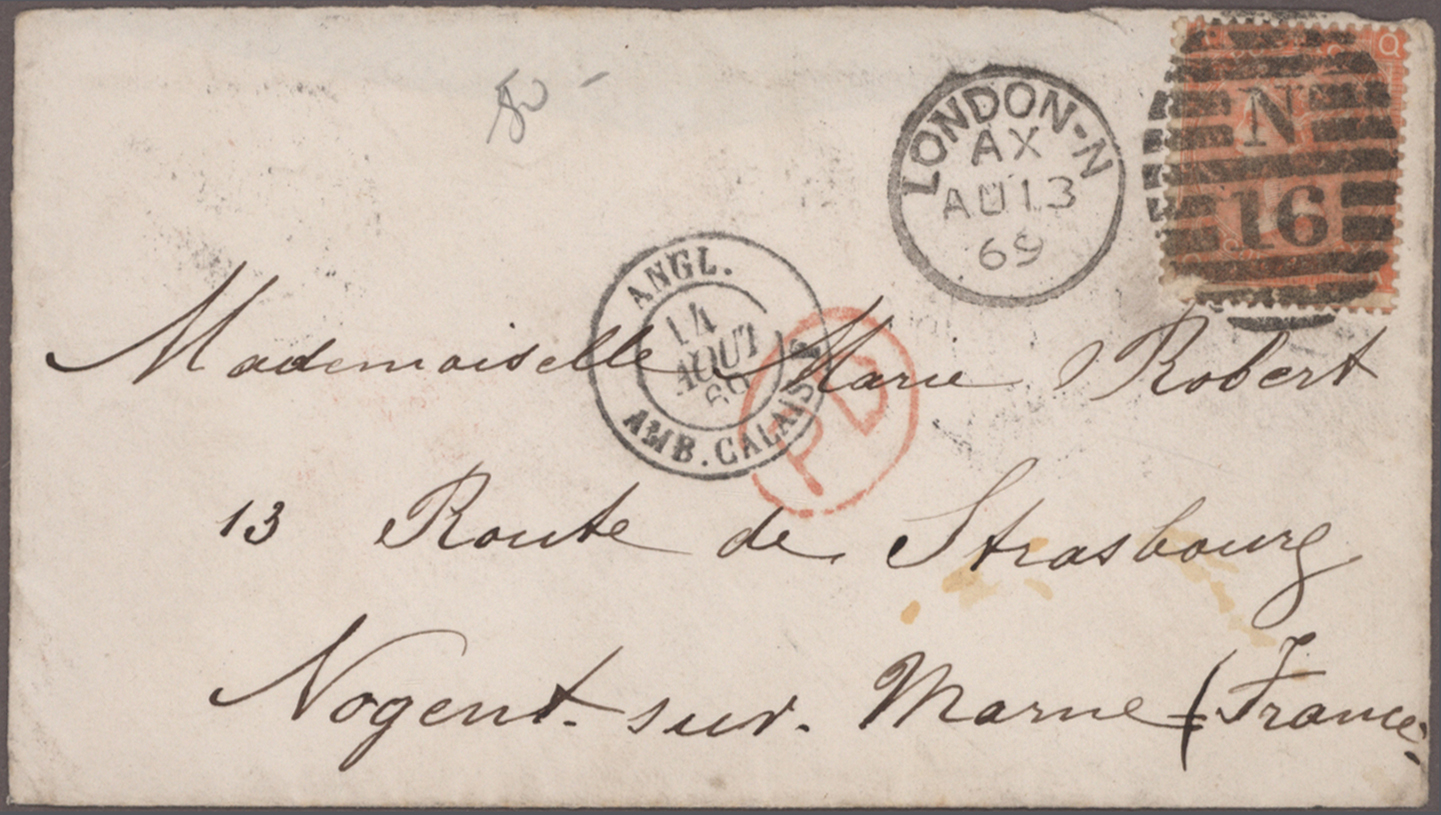 Q
N
16
LONDON-N
AX
AU 13
69
ANGL.
14
AOUT
69
AMB. CALAIS
PD
Mademoiselle Marie Robert
13 Route de Strasbourg
Nogent-sur-Marne (France)